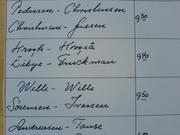 Pedersen - Christensen
Christensen - Jessen 9³⁰
Hrogh - Horgiå
Dibye - Truckman 9⁴⁰
Wills - Wills
Sørensen - Iversen 9⁵⁰
Andreasen - Tause